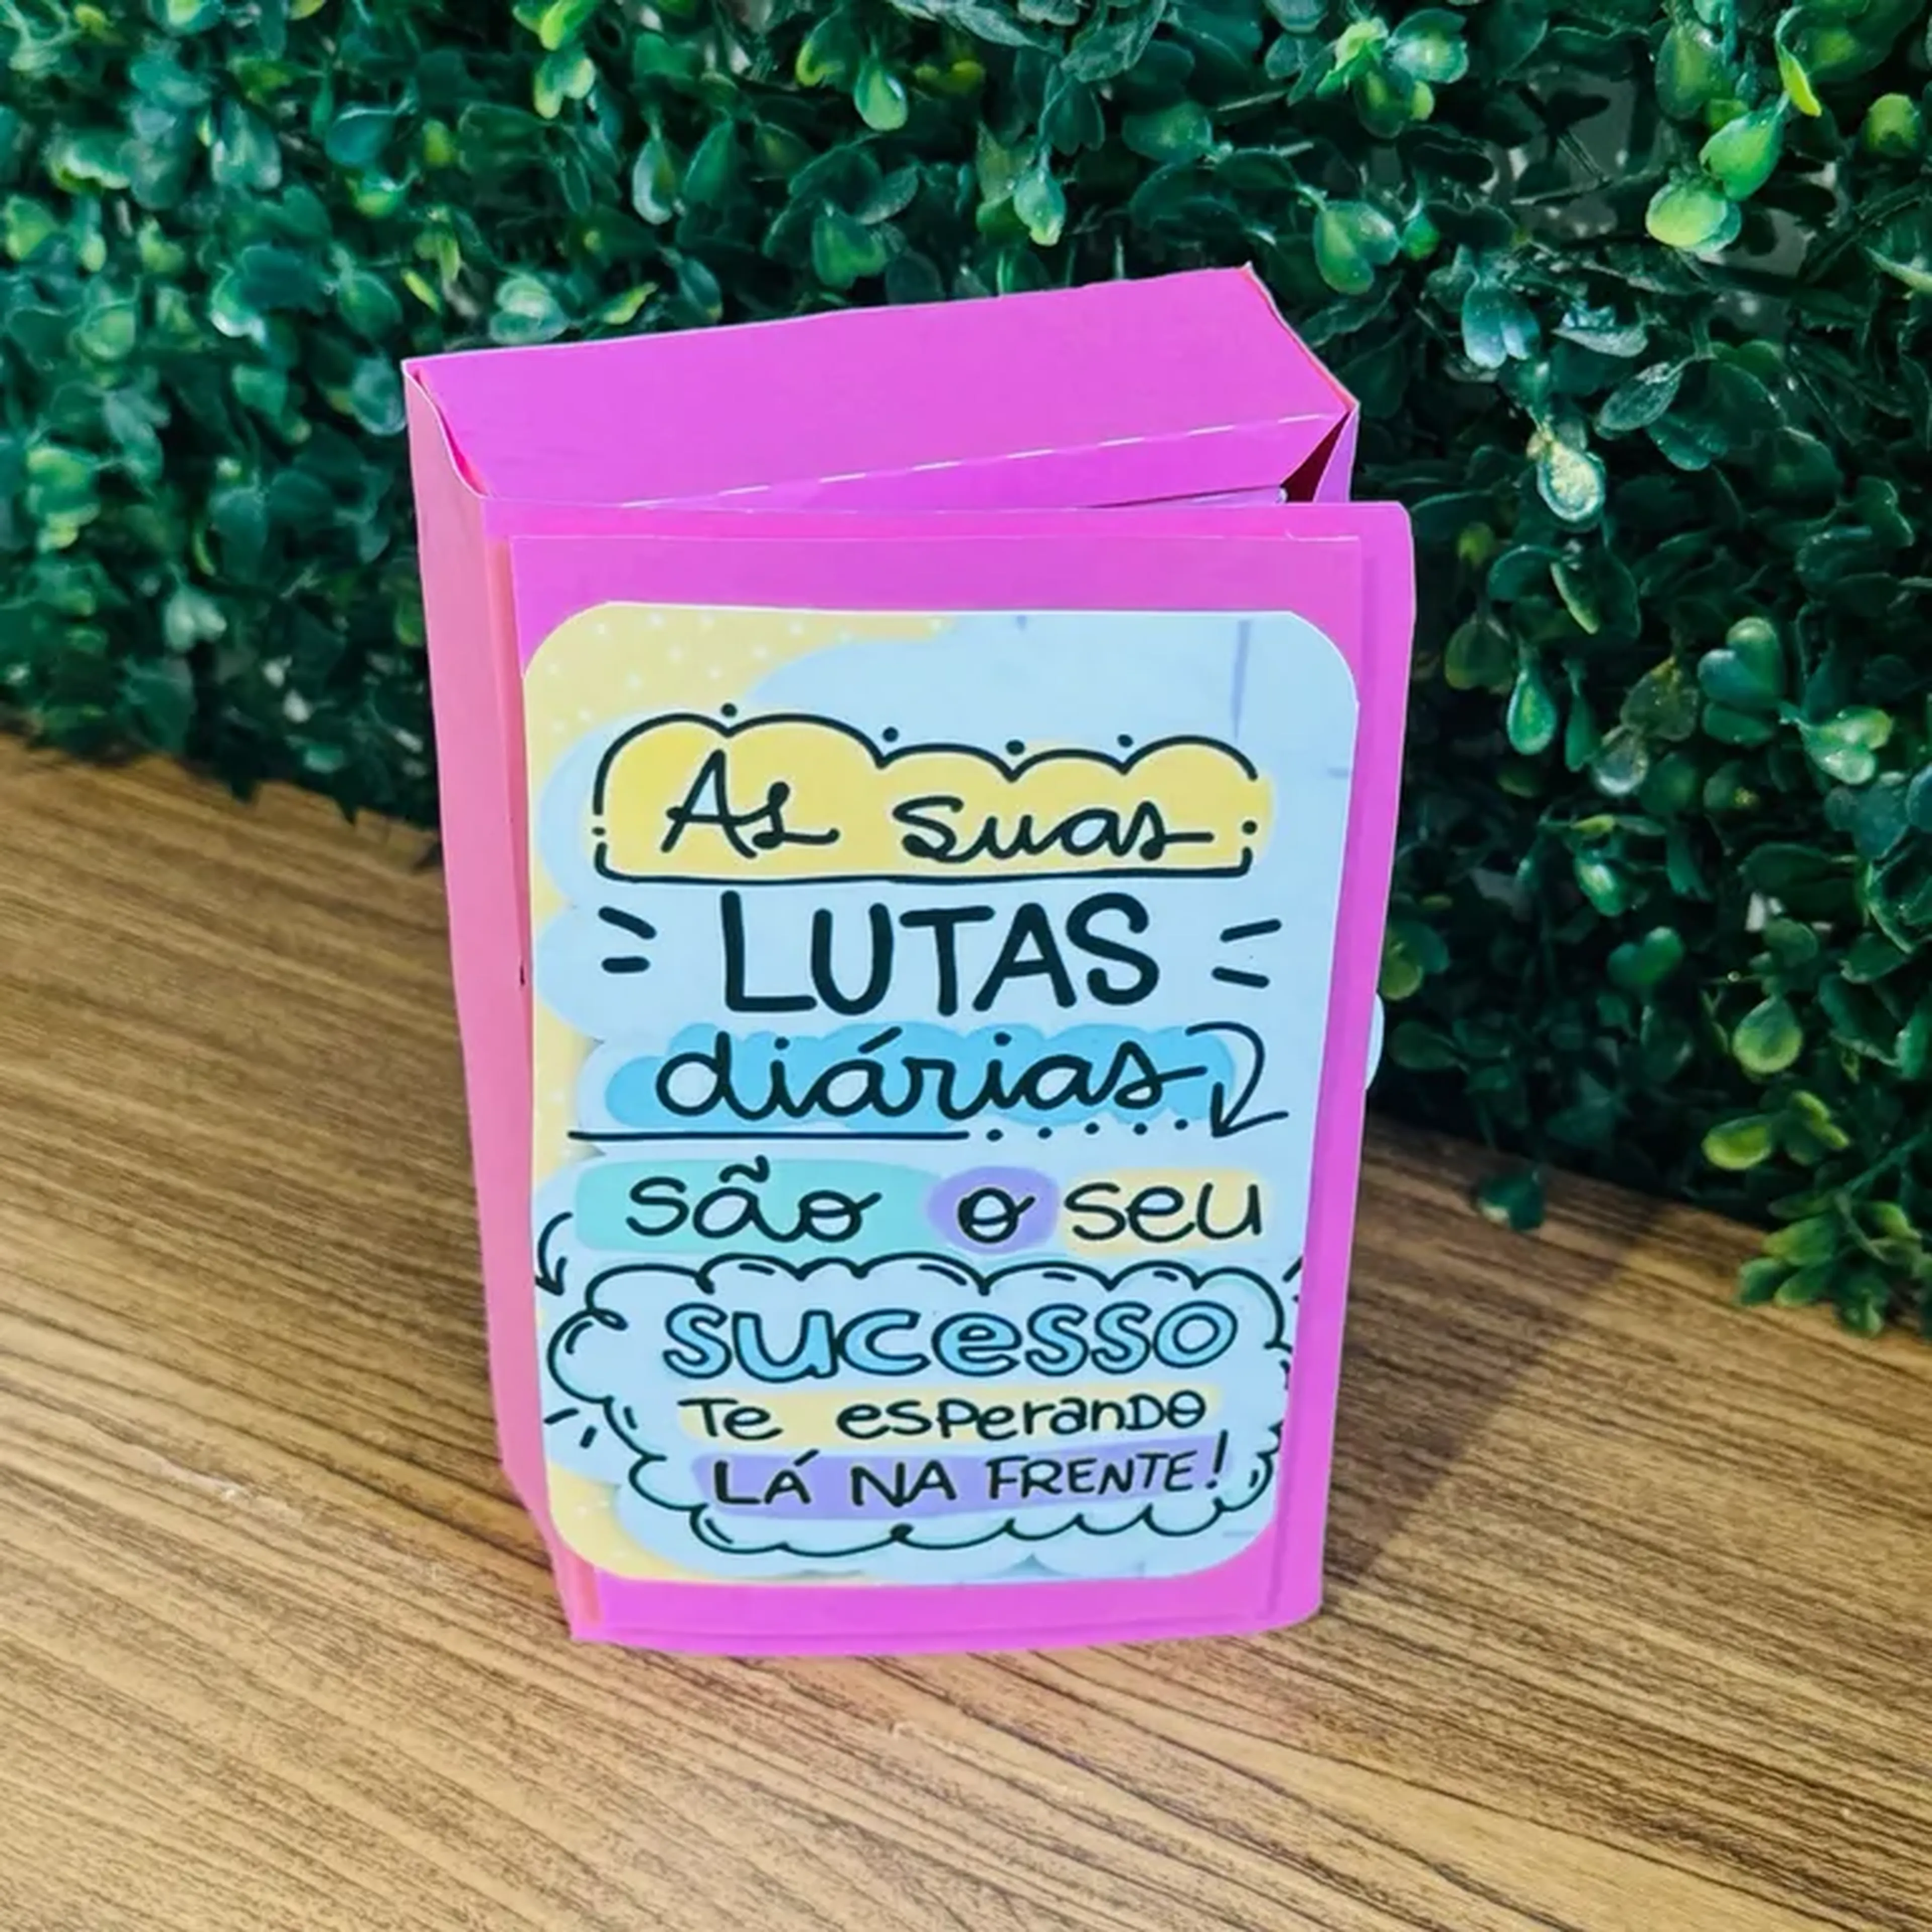 As suas
LUTAS
diárias
são o seu
sucesso
Te esperando
LÁ NA FRENTE!